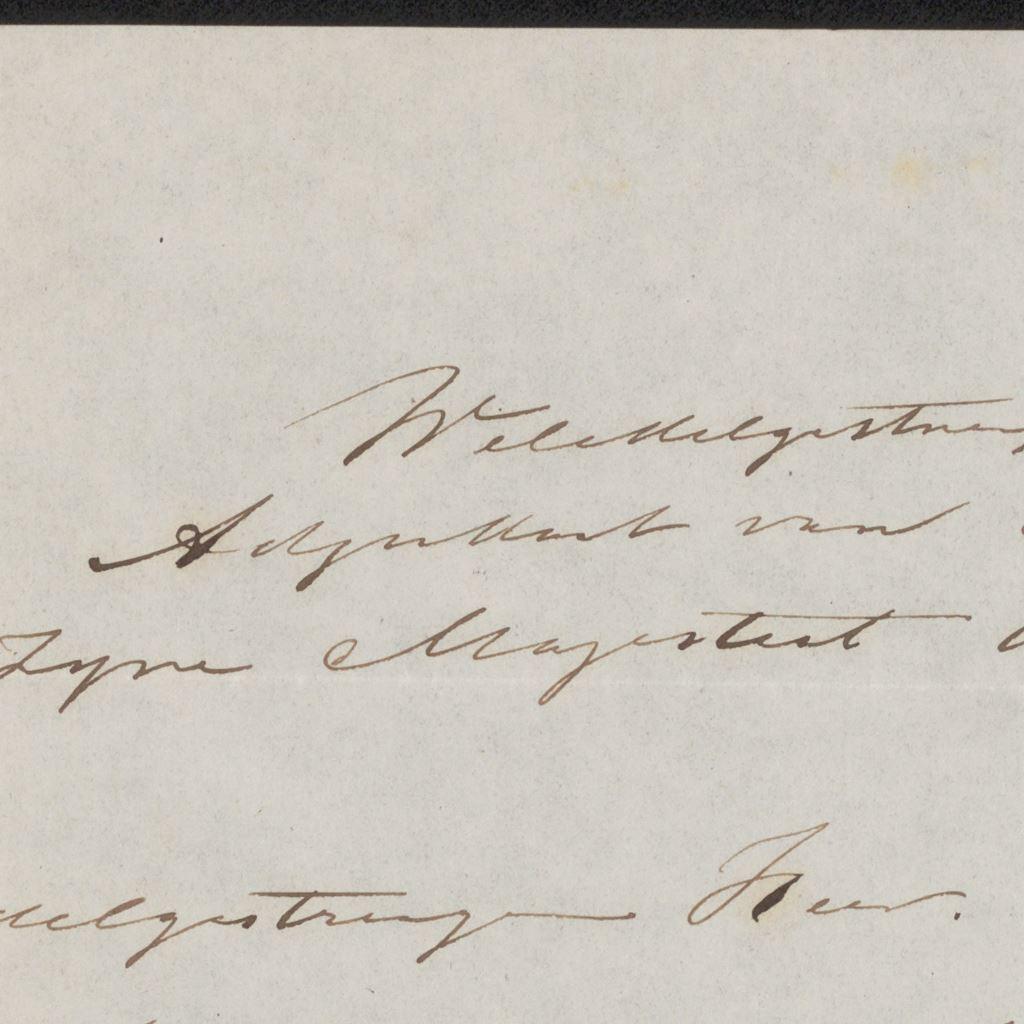 Weledelgestren
Adjudant van
Zyne Majesteit
delgestrenge Heer.